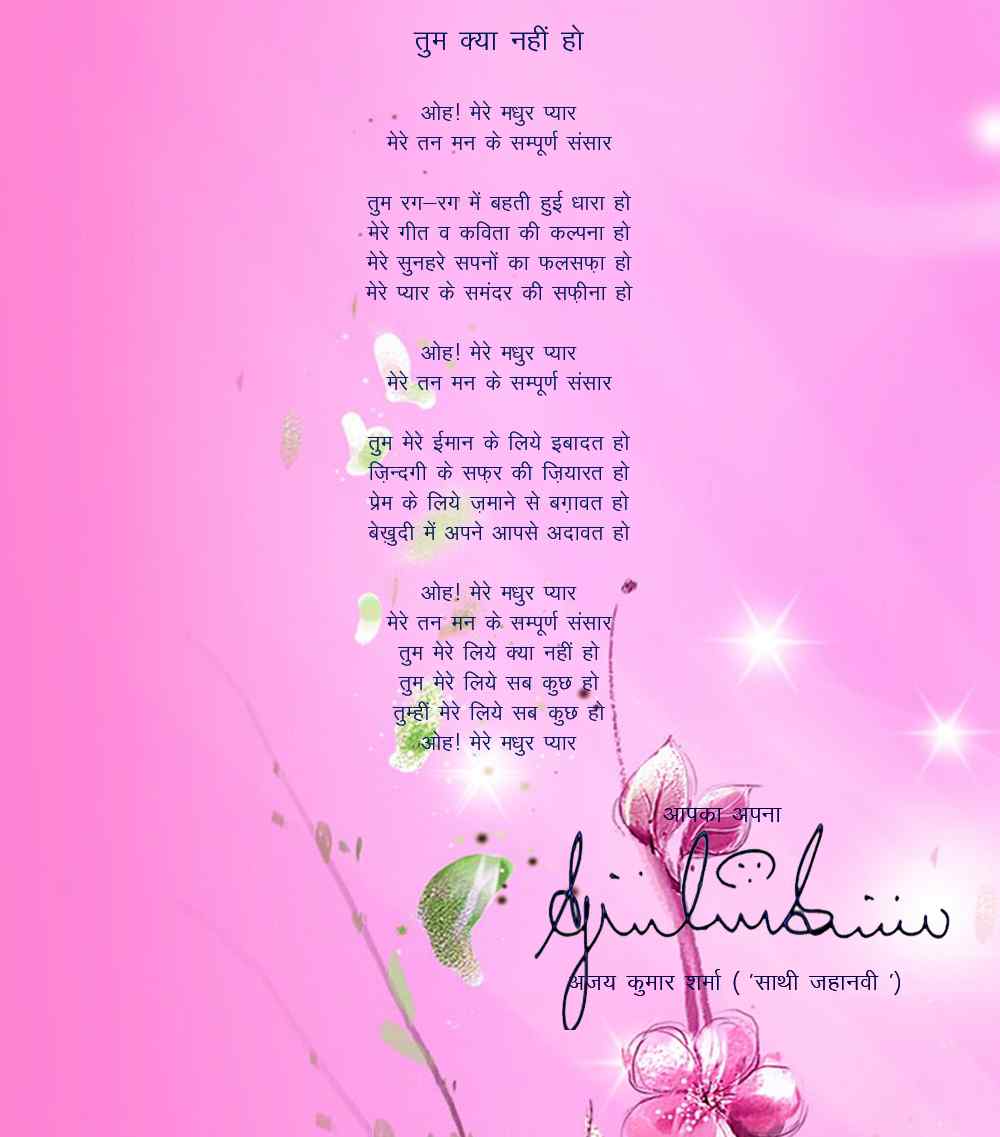 तुम क्या नहीं हो
ओह! मेरे मधुर प्यार
मेरे तन मन के सम्पूर्ण संसार
तुम रग–रग में बहती हुई धारा हो
मेरे गीत व कविता की कल्पना हो
मेरे सुनहरे सपनों का फलसफ़ा हो
मेरे प्यार के समंदर की सफ़ीना हो
ओह! मेरे मधुर प्यार
मेरे तन मन के सम्पूर्ण संसार
तुम मेरे ईमान के लिये इबादत हो
ज़िन्दगी के सफ़र की ज़ियारत हो
प्रेम के लिये ज़माने से बग़ावत हो
बेख़ुदी में अपने आपसे अदावत हो
ओह! मेरे मधुर प्यार
मेरे तन मन के सम्पूर्ण संसार
तुम मेरे लिये क्या नहीं हो
तुम मेरे लिये सब कुछ हो
तुम्हीं मेरे लिये सब कुछ हो
ओह! मेरे मधुर प्यार
आपका अपना
अजय कुमार शर्मा ( 'साथी जहानवी ')